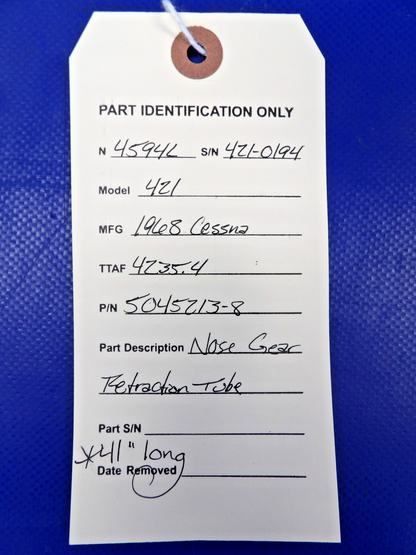 PART IDENTIFICATION ONLY
N 4594L S/N 421-0194
Model 421
MFG 1968 Cessna
TTAF 4235.4
P/N 5045213-8
Part Description Nose Gear
Retraction Tube
Part S/N
*41" long
Date Removed